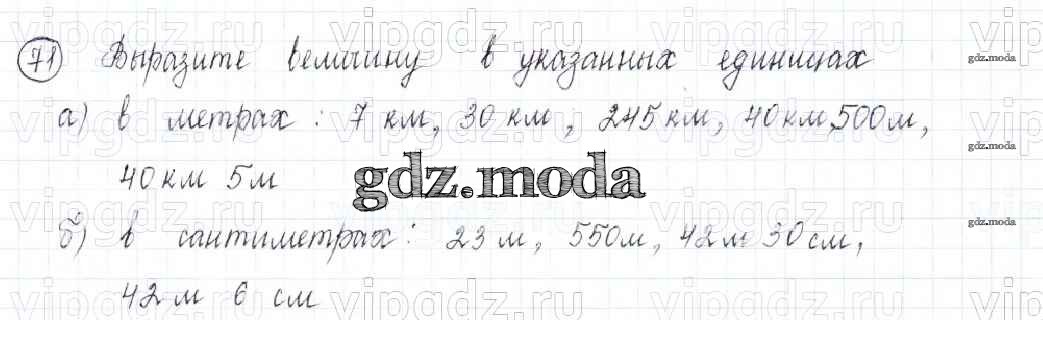 71 Выразите величину в указанных единицах
а) в метрах: 7 км, 30 км, 245 км, 40 км 500 м,
40 км 5 м
gdz.moda
б) в сантиметрах: 23 м, 550 м, 42 м 30 см,
42 м 6 см
gdz.moda
gdz.moda
gdz.moda
vipgdz.ru